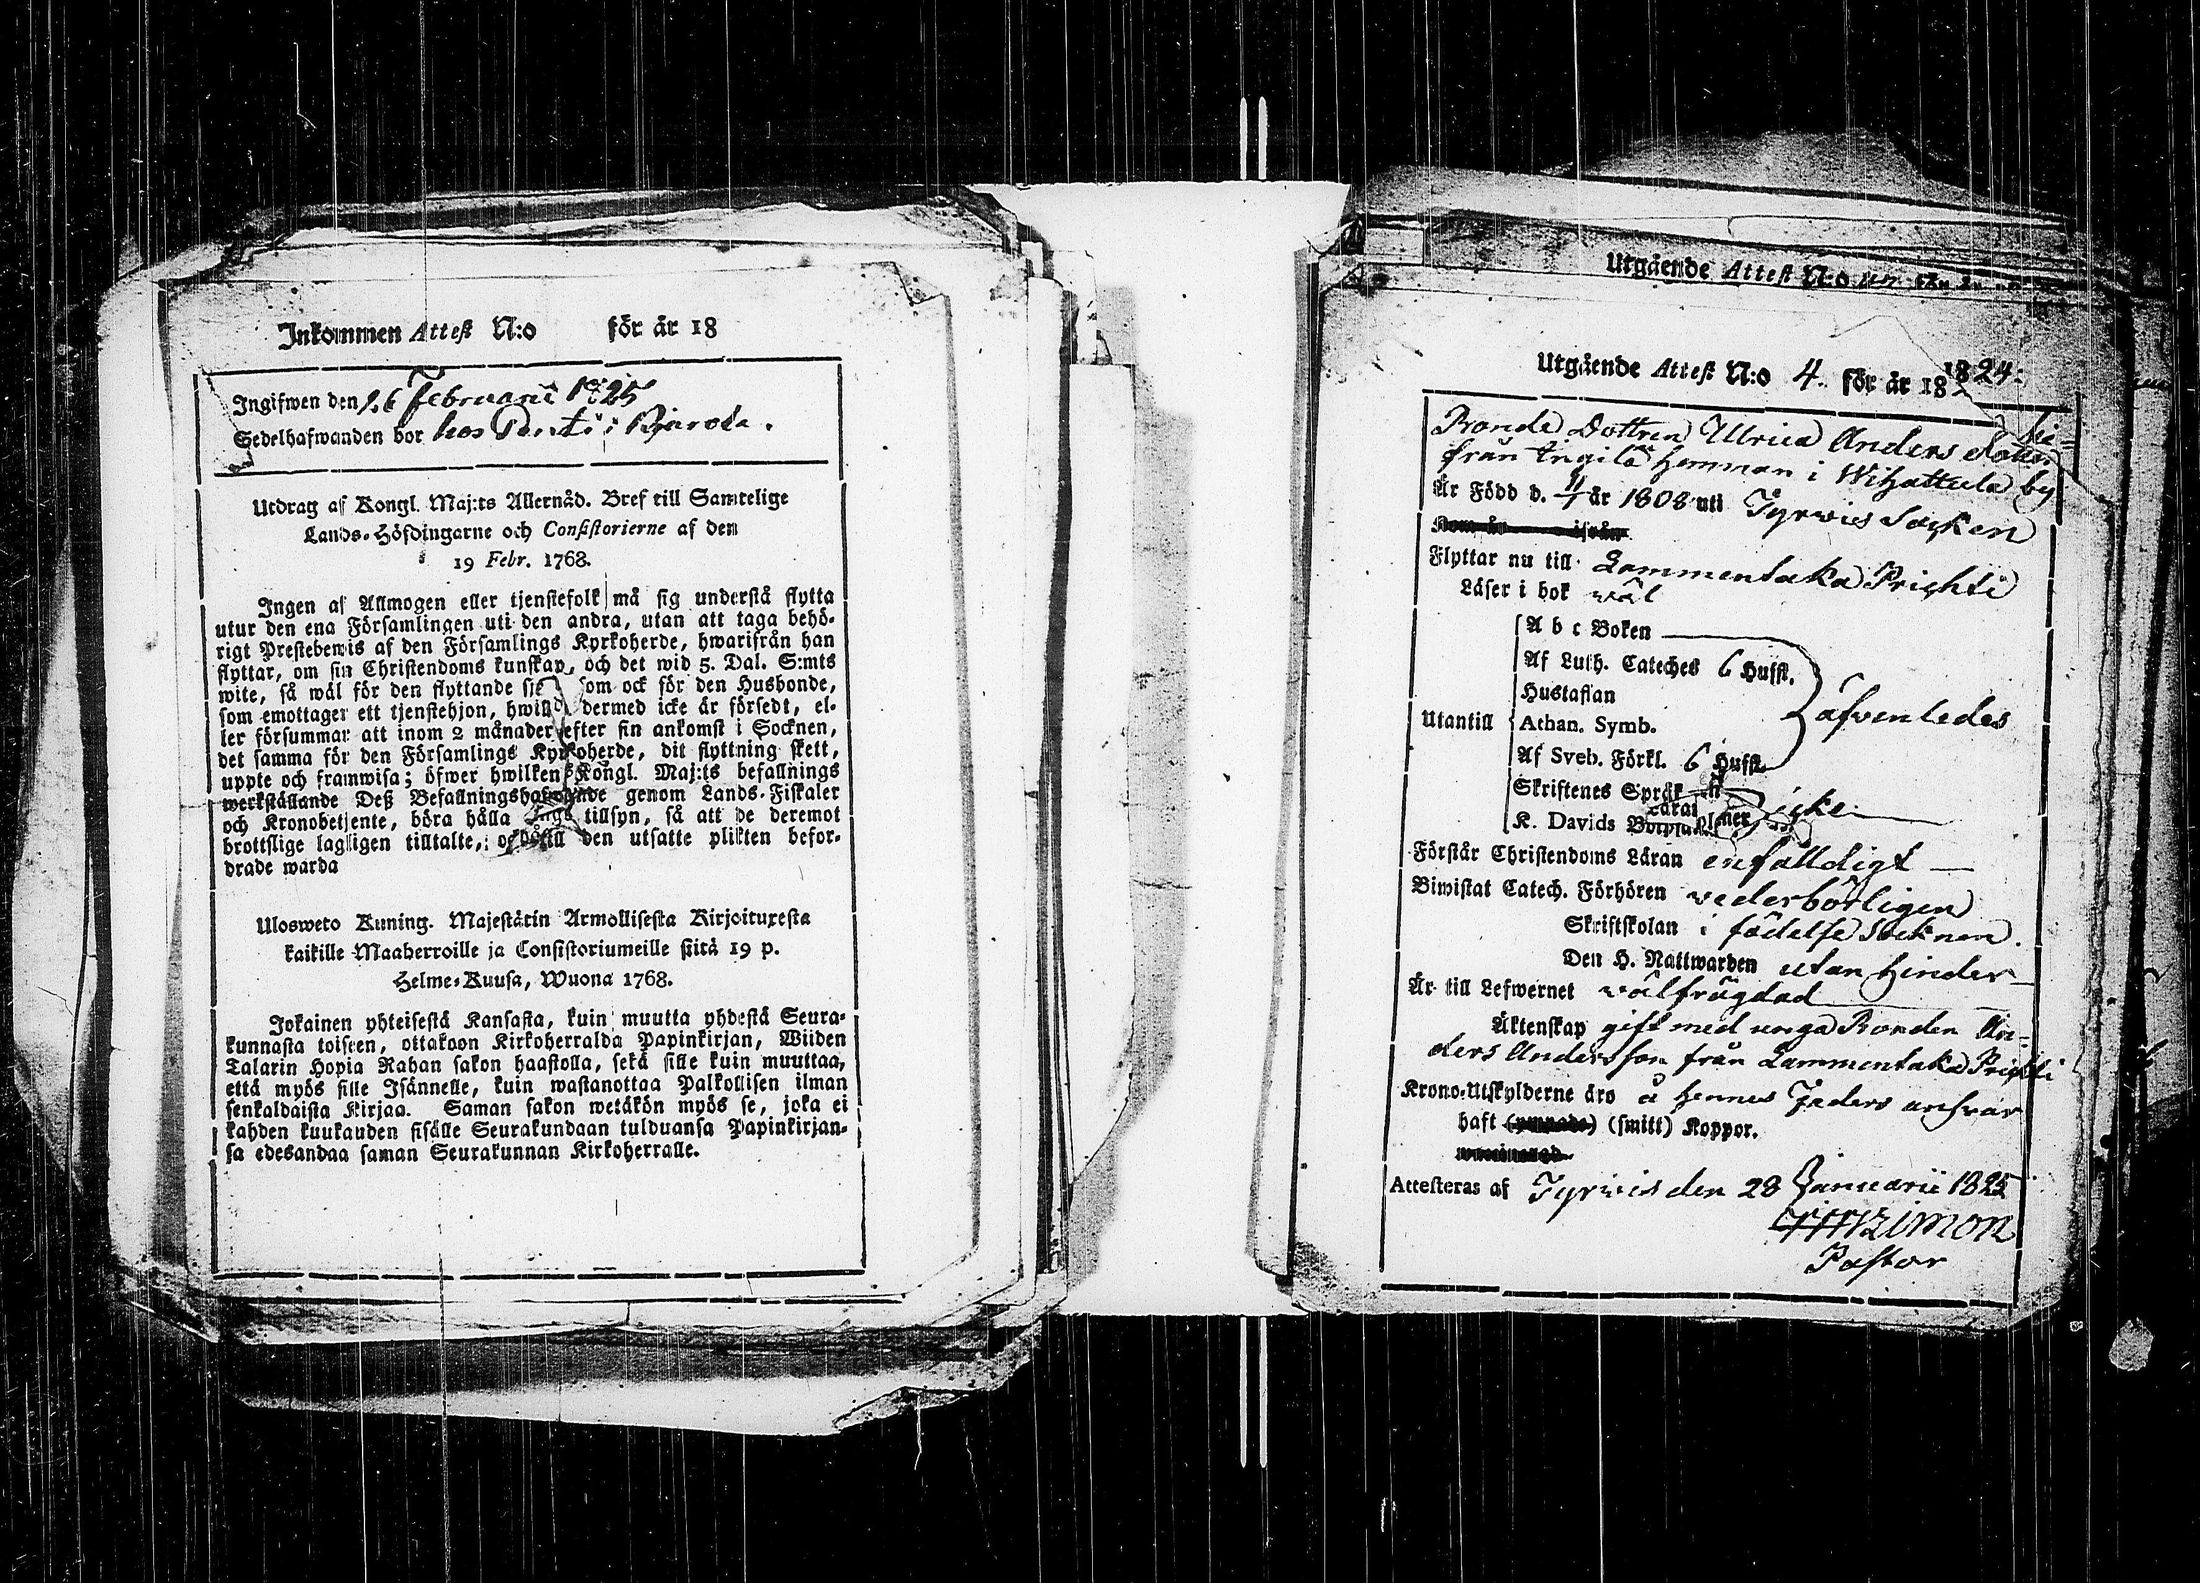 Inkommen Attest N:o för år 18
Ingifwen den 26 Februarii 1825
Sedelhafwanden bor hos Pentti i
Utdrag af Kongl. Maj:ts Allernåd. Bref till Samtelige
Lands-Höfdingarne och Consistorierne af den
19 Febr. 1768.
Ingen af Allmogen eller tjenstefolk må sig understå flytta
utur den ena Församlingen uti den andra, utan att taga behö-
rigt Prestebewis af den Församlings Kyrkoherde, hwarifrån han
flyttar, om sin Christendoms kunskap, och det wid 5. Dal. S:mts
wite, så wäl för den flyttande som ock för den Husbonde,
som emottager ett tjenstehjon, dermed icke är försedt, el-
ler försummar att inom 2 månader efter sin ankomst i Socknen,
det samma för den Församlings Kyrkoherde, dit flyttning skett,
uppte och framwisa; öfwer hwilken Kongl. Maj:ts befallnings
werkställande Deß Befallningshafwande genom Lands-Fiskaler
och Kronobetjente, böra hålla noga tillsyn, så att de deremot
brottslige lagligen tilltalte, och till den utsatte plikten befor-
drade warda
Ulosweto Kuning. Majestätin Armollisesta Kirjoituxesta
kaikille Maaherroille ja Consistoriumeille siitä 19 p.
Helme-Kuusa, Wuona 1768.
Jokainen yhteisestä Kansasta, kuin muutta yhdestä Seura-
kunnasta toiseen, ottakoon Kirkoherralda Papinkirjan, Wiiden
Talarin Hopia Rahan sakon haastolla, sekä sille kuin muuttaa,
että myös sille Isännelle, kuin wastanottaa Palkollisen ilman
senkaldaista Kirjaa. Saman sakon wetäkön myös se, joka ei
kahden kuukauden sisälle Seurakundaan tulduansa Papinkirjan-
sa edesandaa saman Seurakunnan Kirkoherralle.
Utgående Attest N:o
Utgående Attest N:o 4. för år 18 1824:
Bonde Dottren Ulrica Anders dotter
från Ingilä Hemman i Wihattula by
Är Född d. 11/1 år 1808 uti Tyrwis Socken
Som är ifrån
Flyttar nu till Lammentaka Prihti
Läser i bok wäl
A b c Boken
Af Luth. Cateches 6 Hufst.
Hustaflan
Utantill Athan. Symb. äfvenledes
Af Sveb. Förkl. 6 Hufst.
Skriftenes Språk
K. Davids icke
Förstår Christendoms Läran enfalldigt
Biwistat Catech. Förhören vederbörligen
Skriftskolan i födelse Socknen.
Den H. Nattwarden utan hinder
Är till Lefwernet wälfrägdad
Äktenskap gift med unga Bonden An-
ders Andersson från Lammentaka Prihti
Krono-Utskylderne äro å hennes Faders ansvar
haft (smitt) Koppor.
Attesteras af Tyrwis den 28 Januarii 1825
Pastor